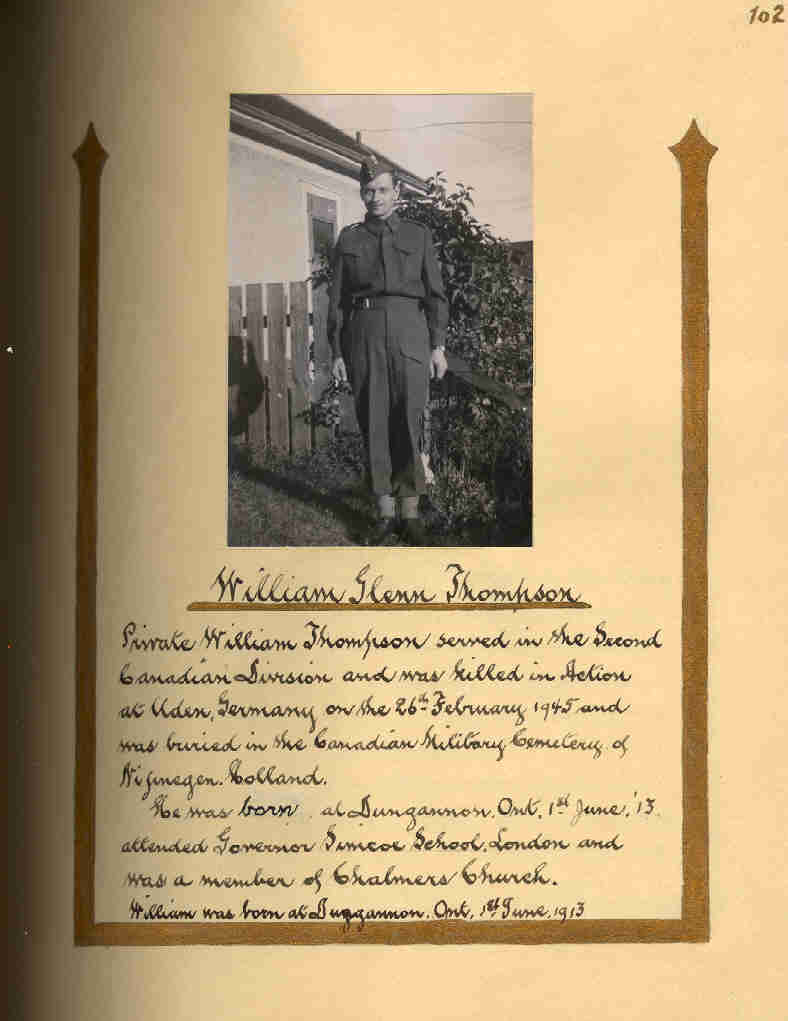 102
William Glenn Thompson
Private William Thompson served in the Second
Canadian Division and was killed in Action
at Uden, Germany on the 26th February 1945 and
was buried in the Canadian Military Cemetery of
Nijmegen. Holland.
He was born at Dungannon, Ont, 1st June, '13.
attended Governor Simcoe School, London and
was a member of Chalmers Church.
William was born at Dungannon. Ont, 1st June, 1913